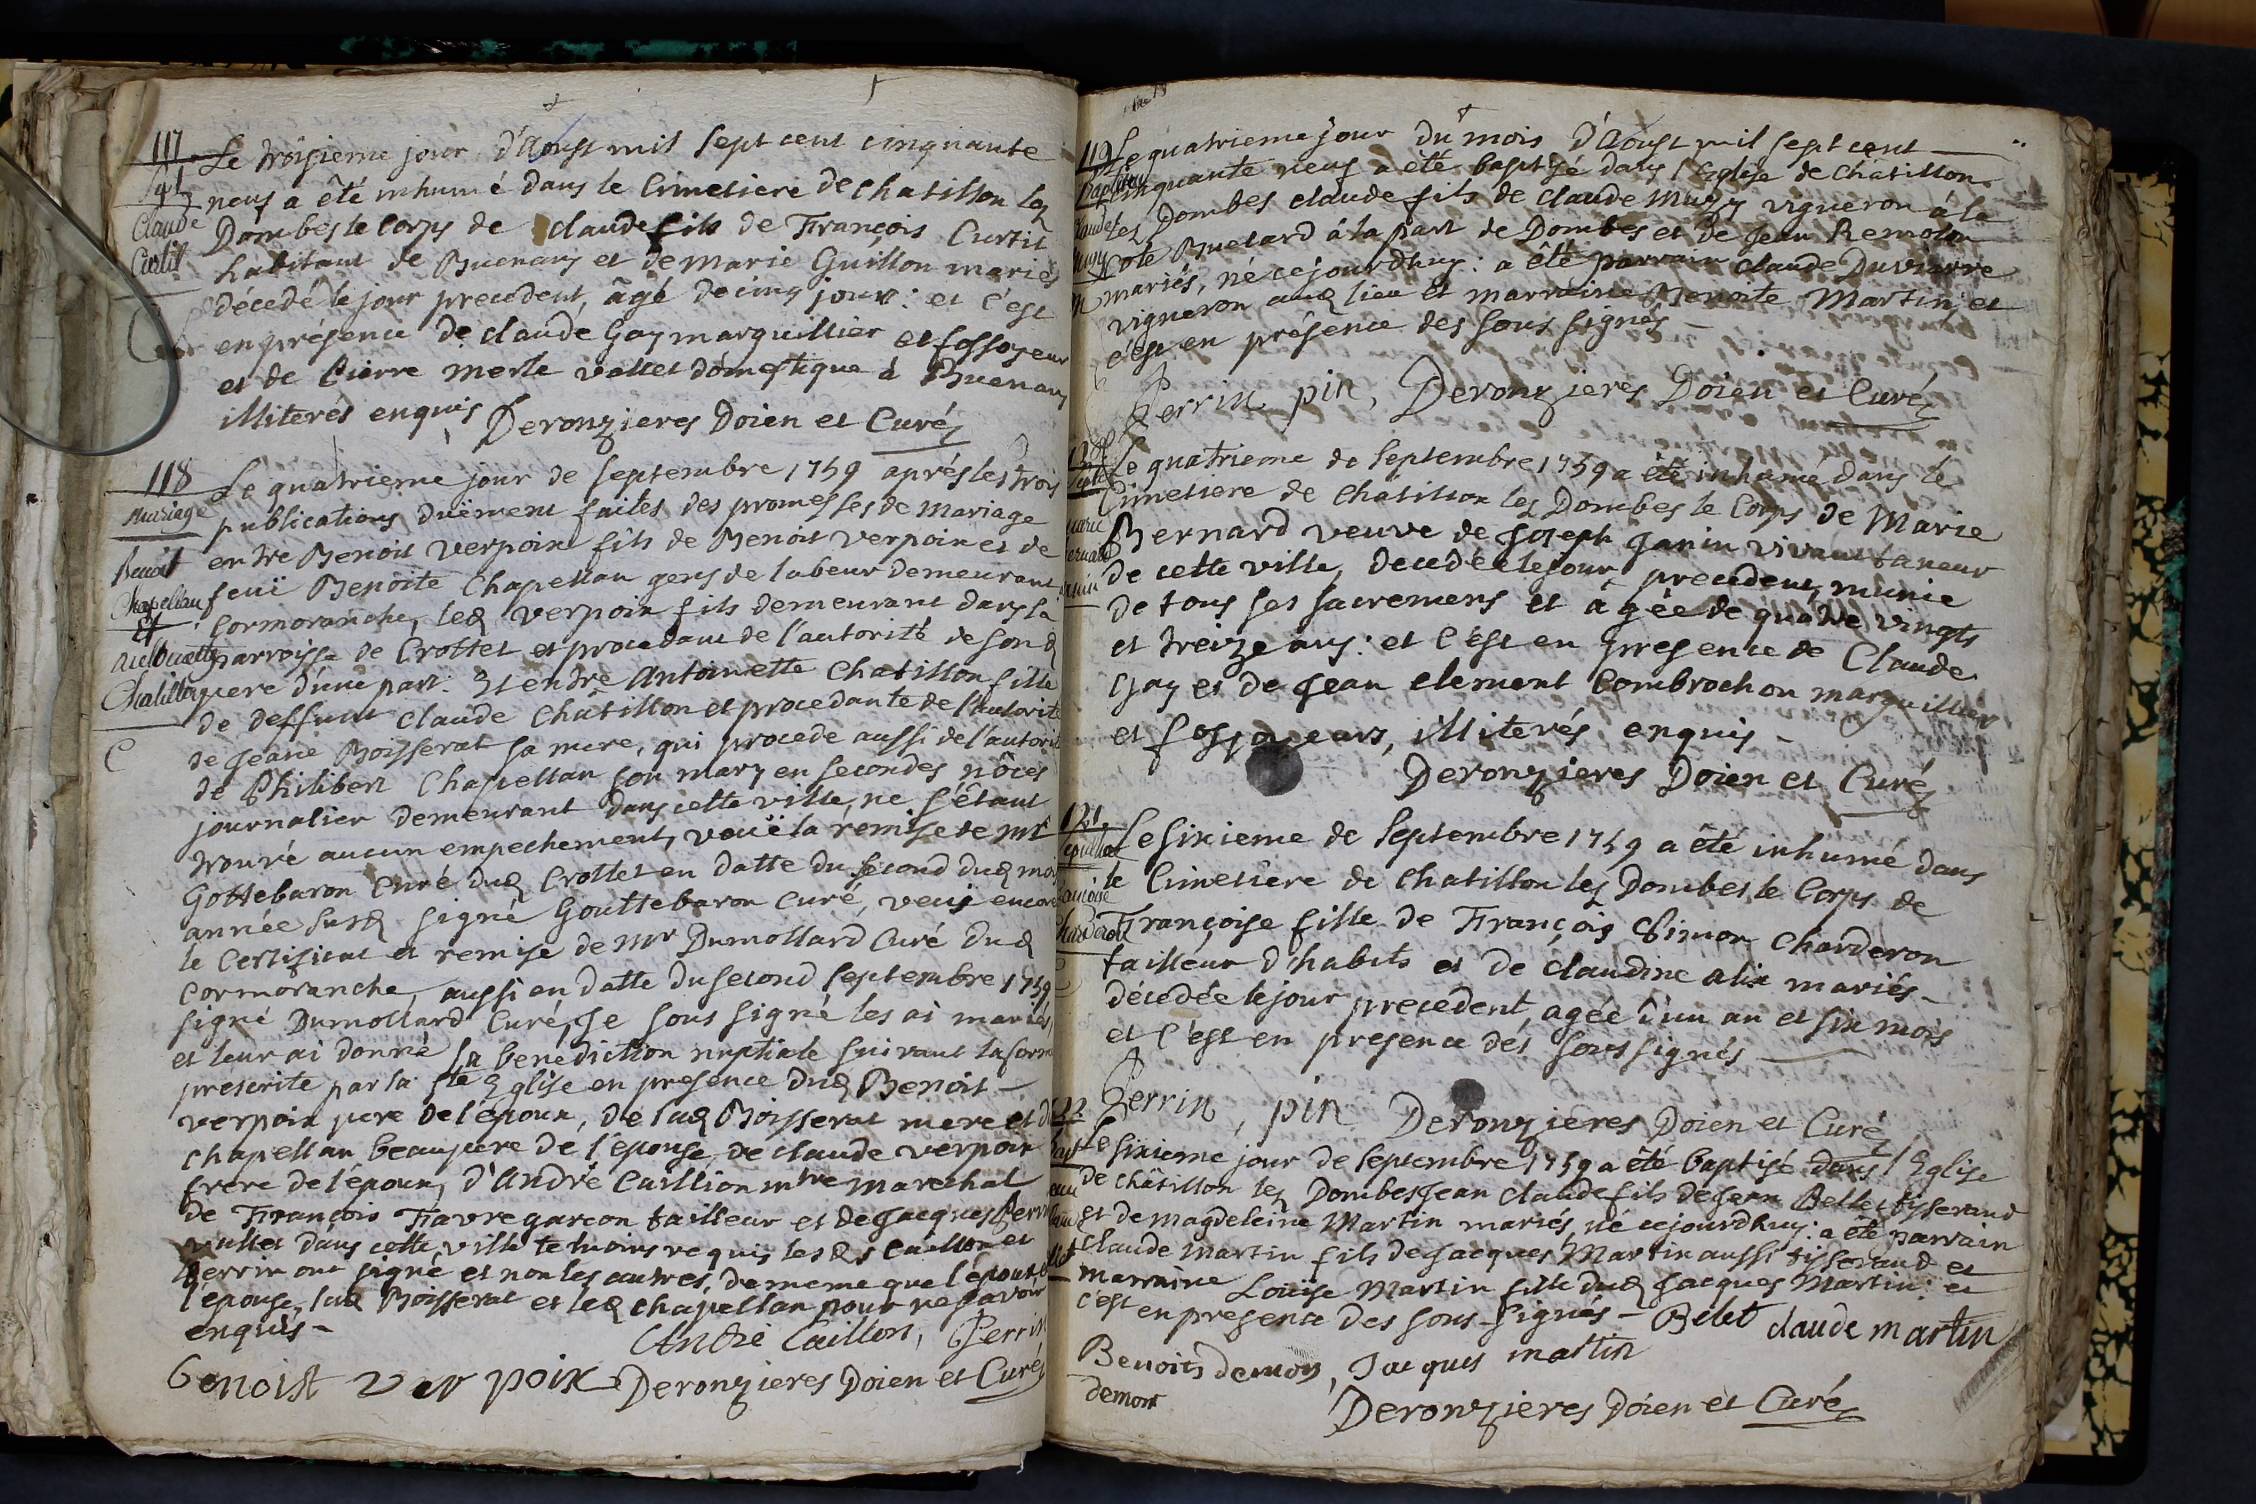 117
Le troisieme jour d'Aoust mil sept cent cinquante
neuf a êté inhumé dans le Cimetiere de chatillon lez
Dombes le Corps de claude fils de François Curtil
habitant de Buenany et de Marie Guillon mariés
décedé le jour precedent, âgé de cinq jours : et c'est
en présence de claude Gay marguillier et fossoyeur
et de Pierre merle vallet domestique à Buenany
illiterés enquis Deronzieres Doien et Curé
Claude
Curtil
118
Mariage
Benoit
Chapellan
et
antoinette
Chatillon
Le quatrieme jour de septembre 1759 aprés les trois
publications duëment faites des promesses de mariage
entre Benoit verpoix fils de Benoit verpoix et de
feuë Benoite Chapellan gens de labeur demeurant à
Cormoranche, led verpoix fils demeurant dans la
parroisse de Crottet et procedant de l'autorité de sond
pere d'une part : Et entre Antoinette Chatillon fille
de deffunt claude Châtillon et procedante de l'autorité
de Jeane Boisserat sa mere, qui procede aussi de l'autorité
de Philibert Chapellan son mary en secondes nôces
journalier demeurant dans cette ville, ne s'êtant
trouvé aucun empechement, veuë la remise de Mr
Gottebaron Curé dud Crottet en datte du second dud mois
année susd signé Gouttebaron Curé, veuë encore
le Certificat et remise de Mr Dumollard Curé dud
Cormoranche, aussi en datte du second septembre 1759
signé Dumollard Curé, Je sous signé les ai mariés,
et leur ai donné la benediction nuptiale suivant la forme
prescrite par la ste Eglise en presence dud Benoit
verpoix pere de l'époux, de lad Boisserat mere et du
chapellan beaupere de l'epouse, de claude verpoix
frere de l'époux, d'André Caillion mtre marechal
de François Favre garcon tailleur et de Jacques Perrin
vallet dans cette ville temoins requis lesds Caillon et
Perrin ont signé et non les autres, de meme que l'époux,
l'epouse, lad Boisserat et led chapellan pour ne savoir
enquis
André Caillon, Perrin
Benoist ver poix Deronzieres Doien et Curé
119
Le quatrieme jour du mois d'Aoust mil sept cent
cinquante neuf a été baptisé dans l'Eglise de Châtillon
lez Dombes claude fils de claude Mugny vigneron à la
cote Buelard à la part de Dombes et de Jean Remolon
mariés, né ce jourdhuy : a êté parrain claude Duviarre
vigneron aud lieu et marraine Benoite Martin, et
c'est en présence des sous signés
Perrin pin, Deronzieres Doien et Curé
Le quatrieme de Septembre 1759 a êté inhumé dans le
Cimetiere de châtillon lez Dombes le Corps de Marie
Bernard veuve de Joseph Janin vivant taneur
de cette ville, decedée le jour precedent, munie
de tous ses sacremens et âgée de quatre vingts
et treize ans : et c'est en presence de Claude
Gay et de Jean clement Combrochon marguilliers
et fossoyeurs, illiterés enquis
Deronzieres Doien et Curé
121
Le sixieme de Septembre 1759 a êté inhumé dans
le Cimetiere de chatillon lez Dombes le Corps de
Françoise fille de François Simon Charderon
tailleur d'habits et de claudine alix mariés
décedée le jour precedent, agée d'un an et six mois
et c'est en presence des sous signés
Perrin, pin Deronzieres Doien et Curé
Le sixieme jour de septembre 1759 a êté baptisé dans l'Eglise
de châtillon lez Dombes Jean claude fils de Jean Bellet tisserand
et de magdeleine Martin mariés, né ce jourdhuy : a êté parrain
claude martin fils de Jacques Martin aussi tisserand et
marraine Louise Martin fille dud Jacques Martin : et
c'est en presence des sous signés Belet claude martin
Benoits demon, Jacques martin
demon
Deronzieres Doien et Curé